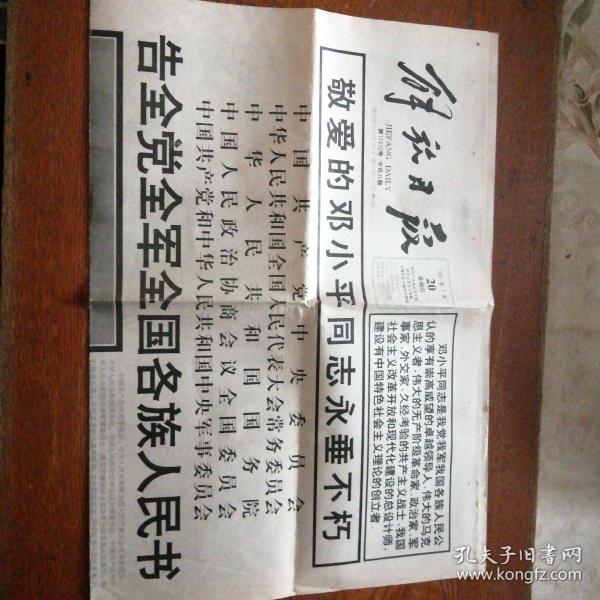 解放日报
JIEFANG DAILY
今日八版
20
星期四
邓小平同志是我党我军我国各族人民公
认的享有崇高威望的卓越领导人,伟大的马克
思主义者,伟大的无产阶级革命家、政治家、军
事家、外交家,久经考验的共产主义战士,我国
社会主义改革开放和现代化建设的总设计师,
建设有中国特色社会主义理论的创立者。
敬爱的邓小平同志永垂不朽
中国共产党中央委员会
中华人民共和国全国人民代表大会常务委员会
中华人民共和国国务院
中国人民政治协商会议全国委员会
中国共产党和中华人民共和国中央军事委员会
告全党全军全国各族人民书
孔夫子旧书网
www.kongfz.com